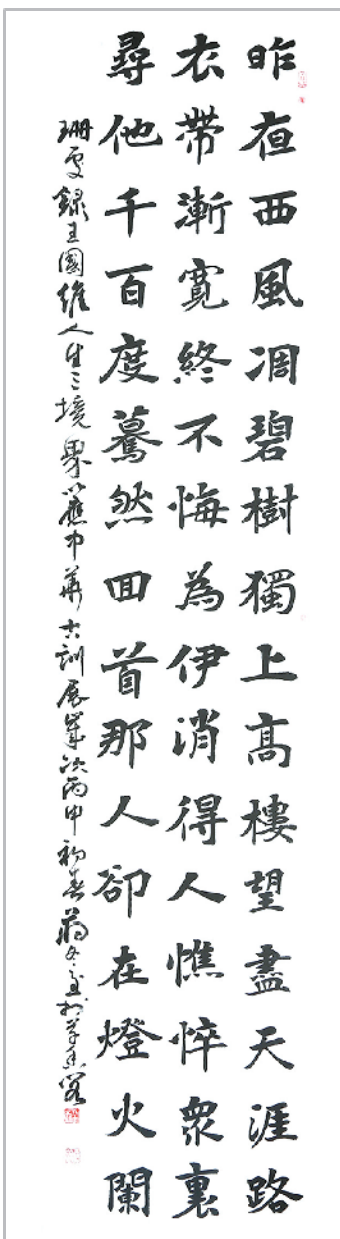 昨夜西風凋碧樹獨上高樓望盡天涯路
衣帶漸寬終不悔為伊消得人憔悴眾裏
尋他千百度驀然回首那人卻在燈火闌
珊處錄王國維人生三境界以應中華古訓展歲次丙申初春